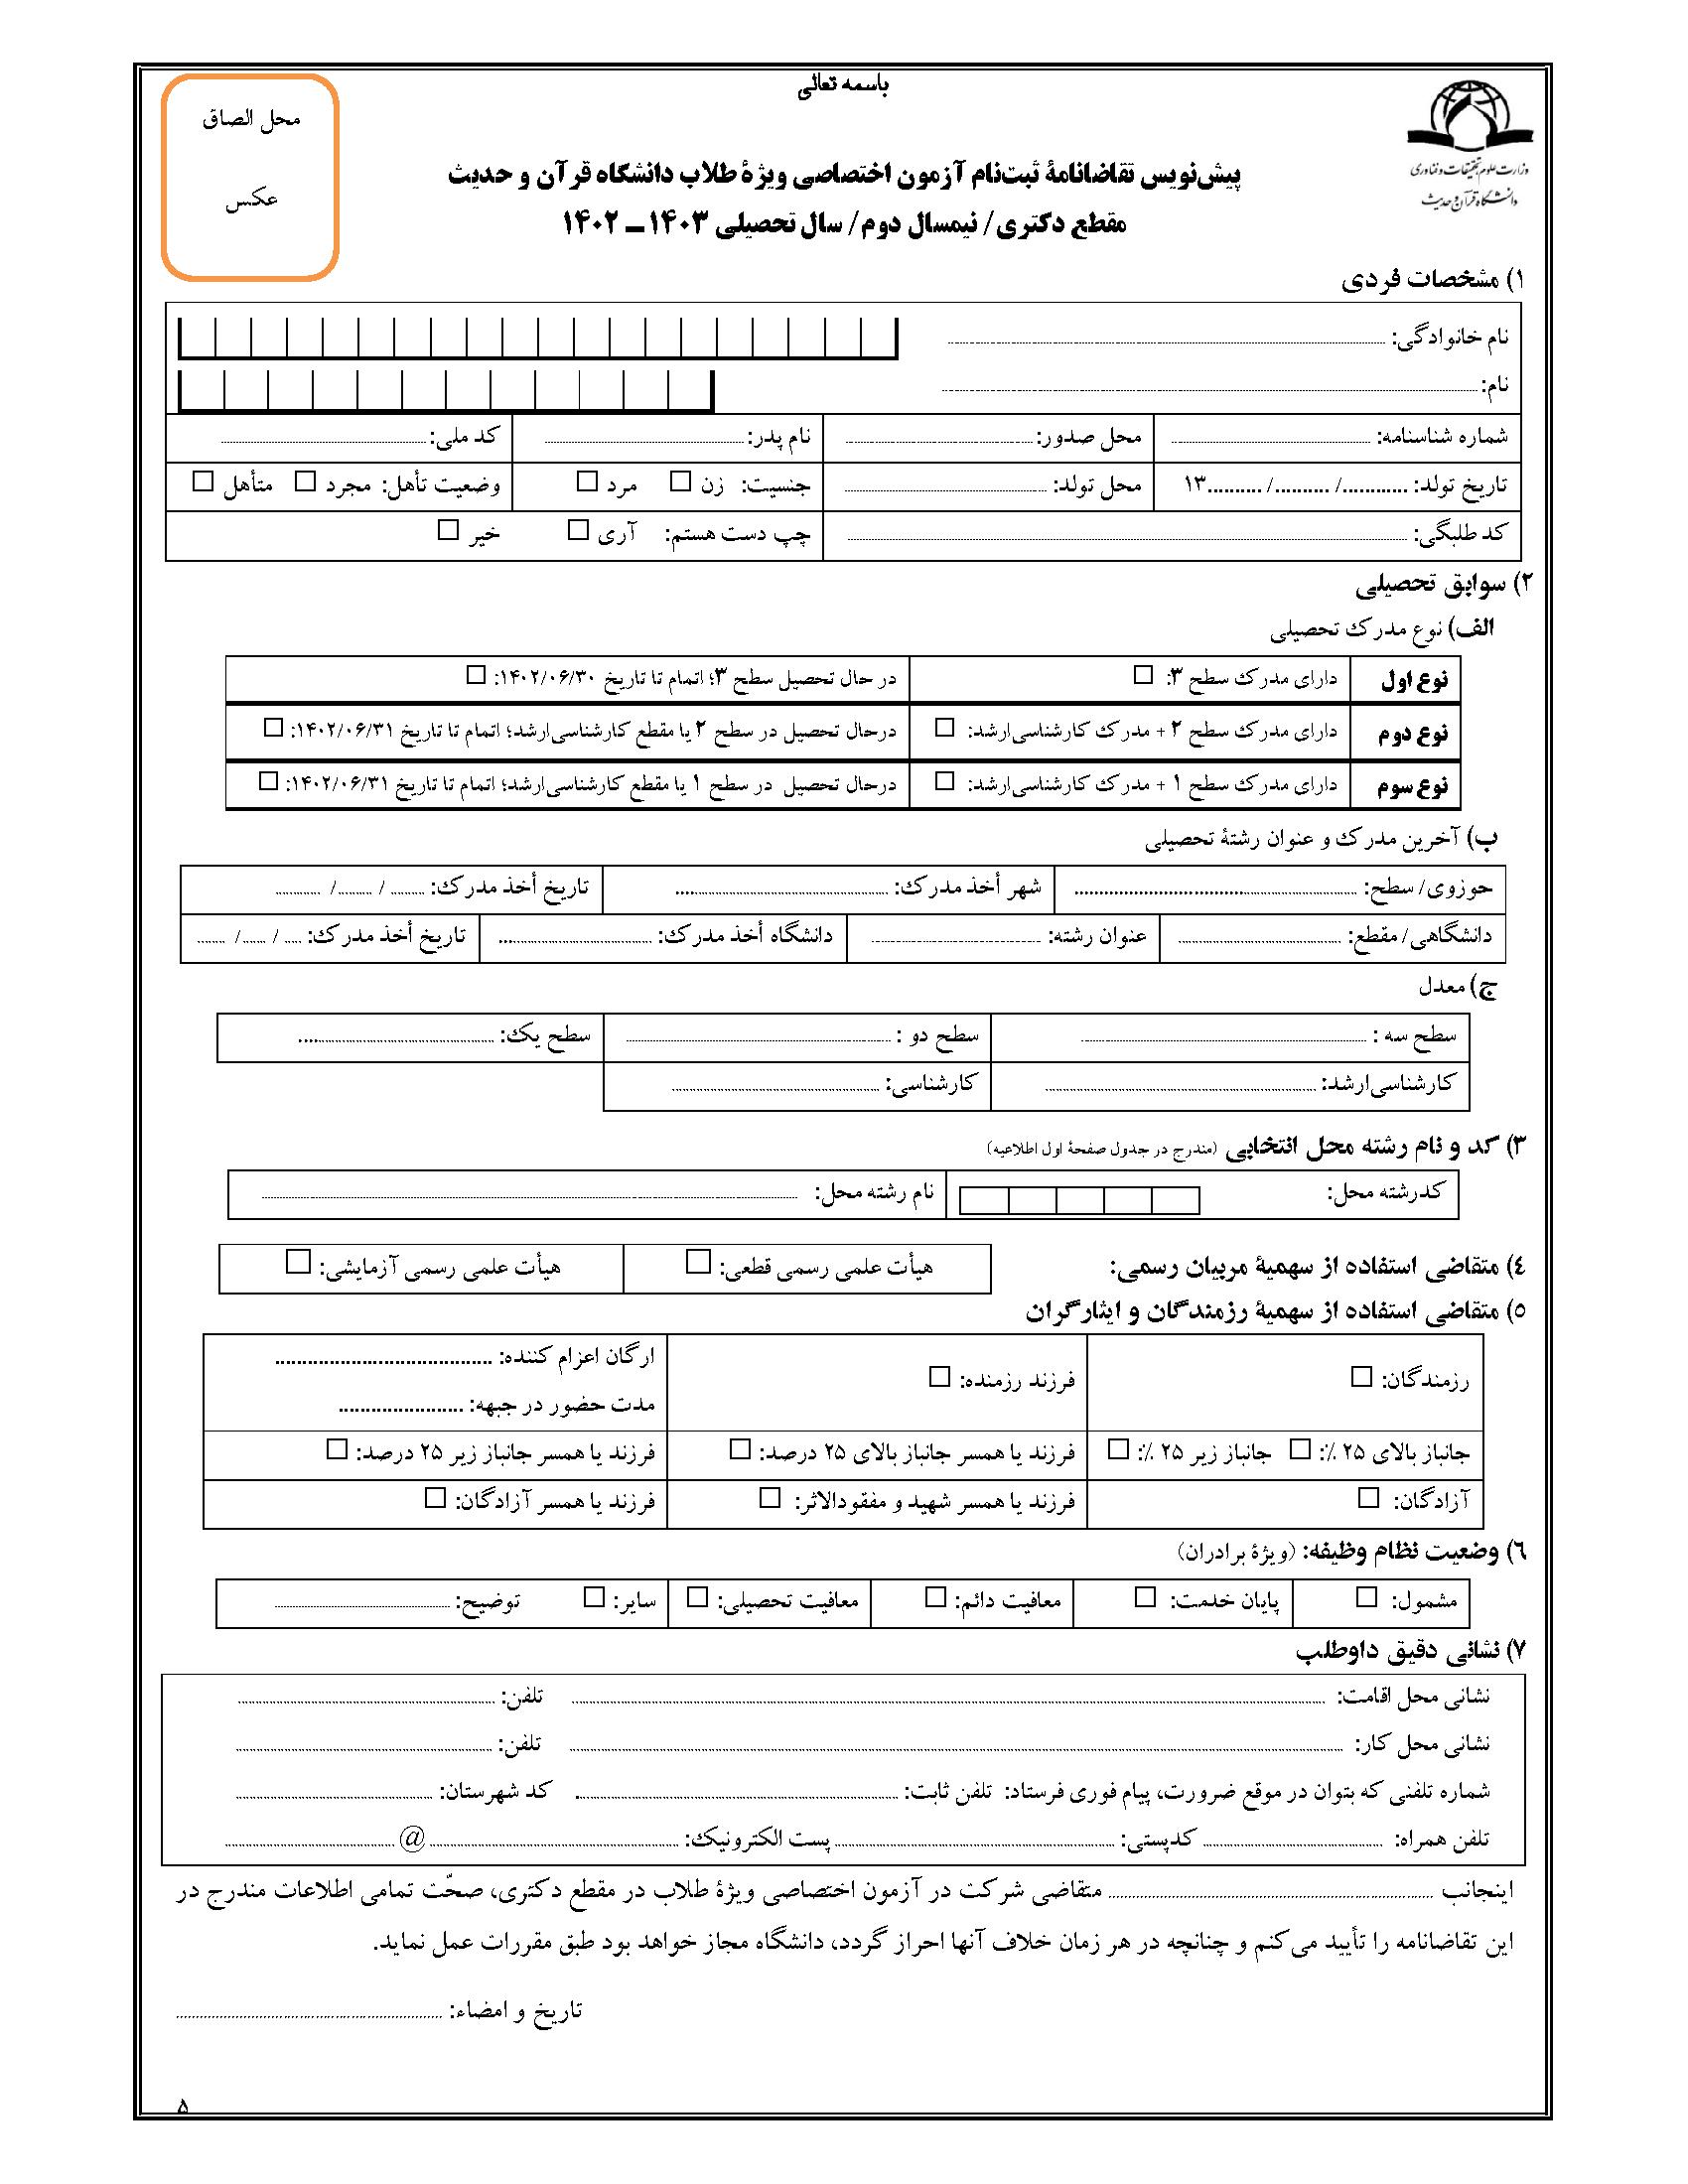 باسمه تعالی
وزارت علوم، تحقیقات و فناوری
دانشگاه قرآن و حدیث
محل الصاق
عکس
پیش‌نویس تقاضانامهٔ ثبت‌نام آزمون اختصاصی ویژهٔ طلاب دانشگاه قرآن و حدیث
مقطع دکتری/ نیمسال دوم/ سال تحصیلی ۱۴۰۳ ـ ۱۴۰۲
۱) مشخصات فردی
نام خانوادگی:
نام:
شماره شناسنامه: محل صدور: نام پدر: کد ملی:
تاریخ تولد: .........../ ........../ ..........۱۳ محل تولد: جنسیت: زن □ مرد □ وضعیت تأهل: مجرد □ متأهل □
کد طلبگی: چپ دست هستم: آری □ خیر □
۲) سوابق تحصیلی
الف) نوع مدرک تحصیلی
نوع اول دارای مدرک سطح ۳: □ در حال تحصیل سطح ۳؛ اتمام تا تاریخ ۱۴۰۲/۰۶/۳۰: □
نوع دوم دارای مدرک سطح ۲ + مدرک کارشناسی‌ارشد: □ درحال تحصیل در سطح ۲ یا مقطع کارشناسی‌ارشد؛ اتمام تا تاریخ ۱۴۰۲/۰۶/۳۱: □
نوع سوم دارای مدرک سطح ۱ + مدرک کارشناسی‌ارشد: □ درحال تحصیل در سطح ۱ یا مقطع کارشناسی‌ارشد؛ اتمام تا تاریخ ۱۴۰۲/۰۶/۳۱: □
ب) آخرین مدرک و عنوان رشتهٔ تحصیلی
حوزوی/ سطح: شهر أخذ مدرک: تاریخ أخذ مدرک: ....... / ......./ .........
دانشگاهی/ مقطع: عنوان رشته: دانشگاه أخذ مدرک: تاریخ أخذ مدرک: .... / ...../ ......
ج) معدل
سطح سه : سطح دو : سطح یک:
کارشناسی‌ارشد: کارشناسی:
۳) کد و نام رشته محل انتخابی (مندرج در جدول صفحهٔ اول اطلاعیه)
کدرشته محل: نام رشته محل:
٤) متقاضی استفاده از سهمیهٔ مربیان رسمی: هیأت علمی رسمی قطعی: □ هیأت علمی رسمی آزمایشی: □
٥) متقاضی استفاده از سهمیهٔ رزمندگان و ایثارگران
رزمندگان: □ فرزند رزمنده: □ ارگان اعزام کننده:
مدت حضور در جبهه:
جانباز بالای ۲۵ ٪: □ جانباز زیر ۲۵ ٪: □ فرزند یا همسر جانباز بالای ۲۵ درصد: □ فرزند یا همسر جانباز زیر ۲۵ درصد: □
آزادگان: □ فرزند یا همسر شهید و مفقودالاثر: □ فرزند یا همسر آزادگان: □
٦) وضعیت نظام وظیفه: (ویژهٔ برادران)
مشمول: □ پایان خدمت: □ معافیت دائم: □ معافیت تحصیلی: □ سایر: □ توضیح:
۷) نشانی دقیق داوطلب
نشانی محل اقامت: تلفن:
نشانی محل کار: تلفن:
شماره تلفنی که بتوان در موقع ضرورت، پیام فوری فرستاد: تلفن ثابت: کد شهرستان:
تلفن همراه: کدپستی: پست الکترونیک: @
اینجانب متقاضی شرکت در آزمون اختصاصی ویژهٔ طلاب در مقطع دکتری، صحّت تمامی اطلاعات مندرج در
این تقاضانامه را تأیید می‌کنم و چنانچه در هر زمان خلاف آنها احراز گردد، دانشگاه مجاز خواهد بود طبق مقررات عمل نماید.
تاریخ و امضاء:
۵